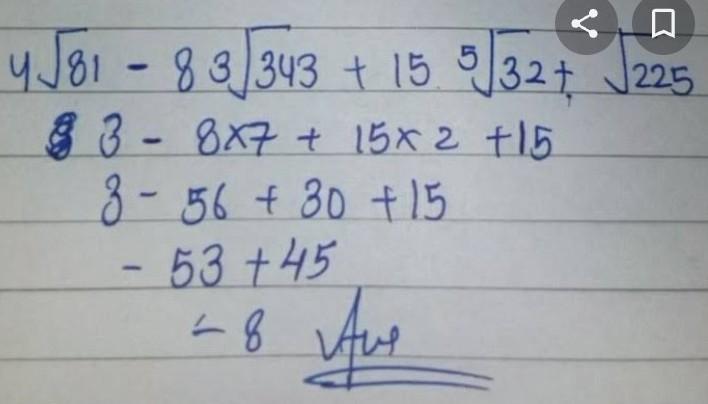 4√81 - 8 3√343 + 15 5√32 + √225
3 - 8×7 + 15×2 +15
3 - 56 + 30 +15
- 53 +45
- 8 Ans